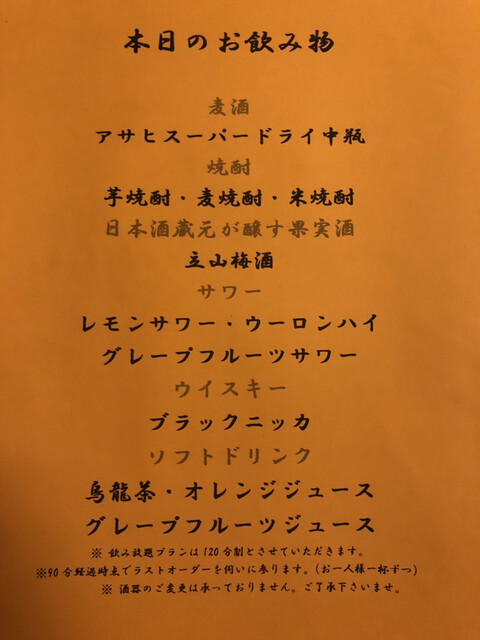 本日のお飲み物
麦酒
アサヒスーパードライ中瓶
焼酎
芋焼酎・麦焼酎・米焼酎
日本酒蔵元が醸す果実酒
立山梅酒
サワー
レモンサワー・ウーロンハイ
グレープフルーツサワー
ウイスキー
ブラックニッカ
ソフトドリンク
烏龍茶・オレンジジュース
グレープフルーツジュース
※ 飲み放題プランは120分制とさせていただきます。
※90分経過時点でラストオーダーを伺いに参ります。(お一人様一杯ずつ)
※ 酒器のご変更は承っておりません。ご了承下さいませ。